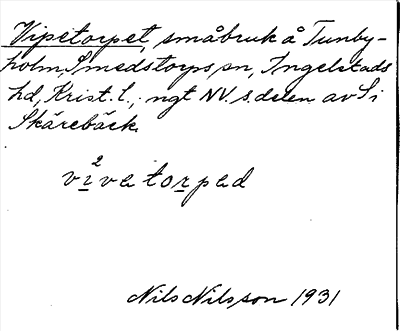 Vipetorpet, småbruk å Tunby-
holm, Smedstorps sn, Ingelstads
hd, Krist. l., ngt NV. s. delen av Si
Skärebäck.
vi²vatorpad
Nils Nilsson 1931